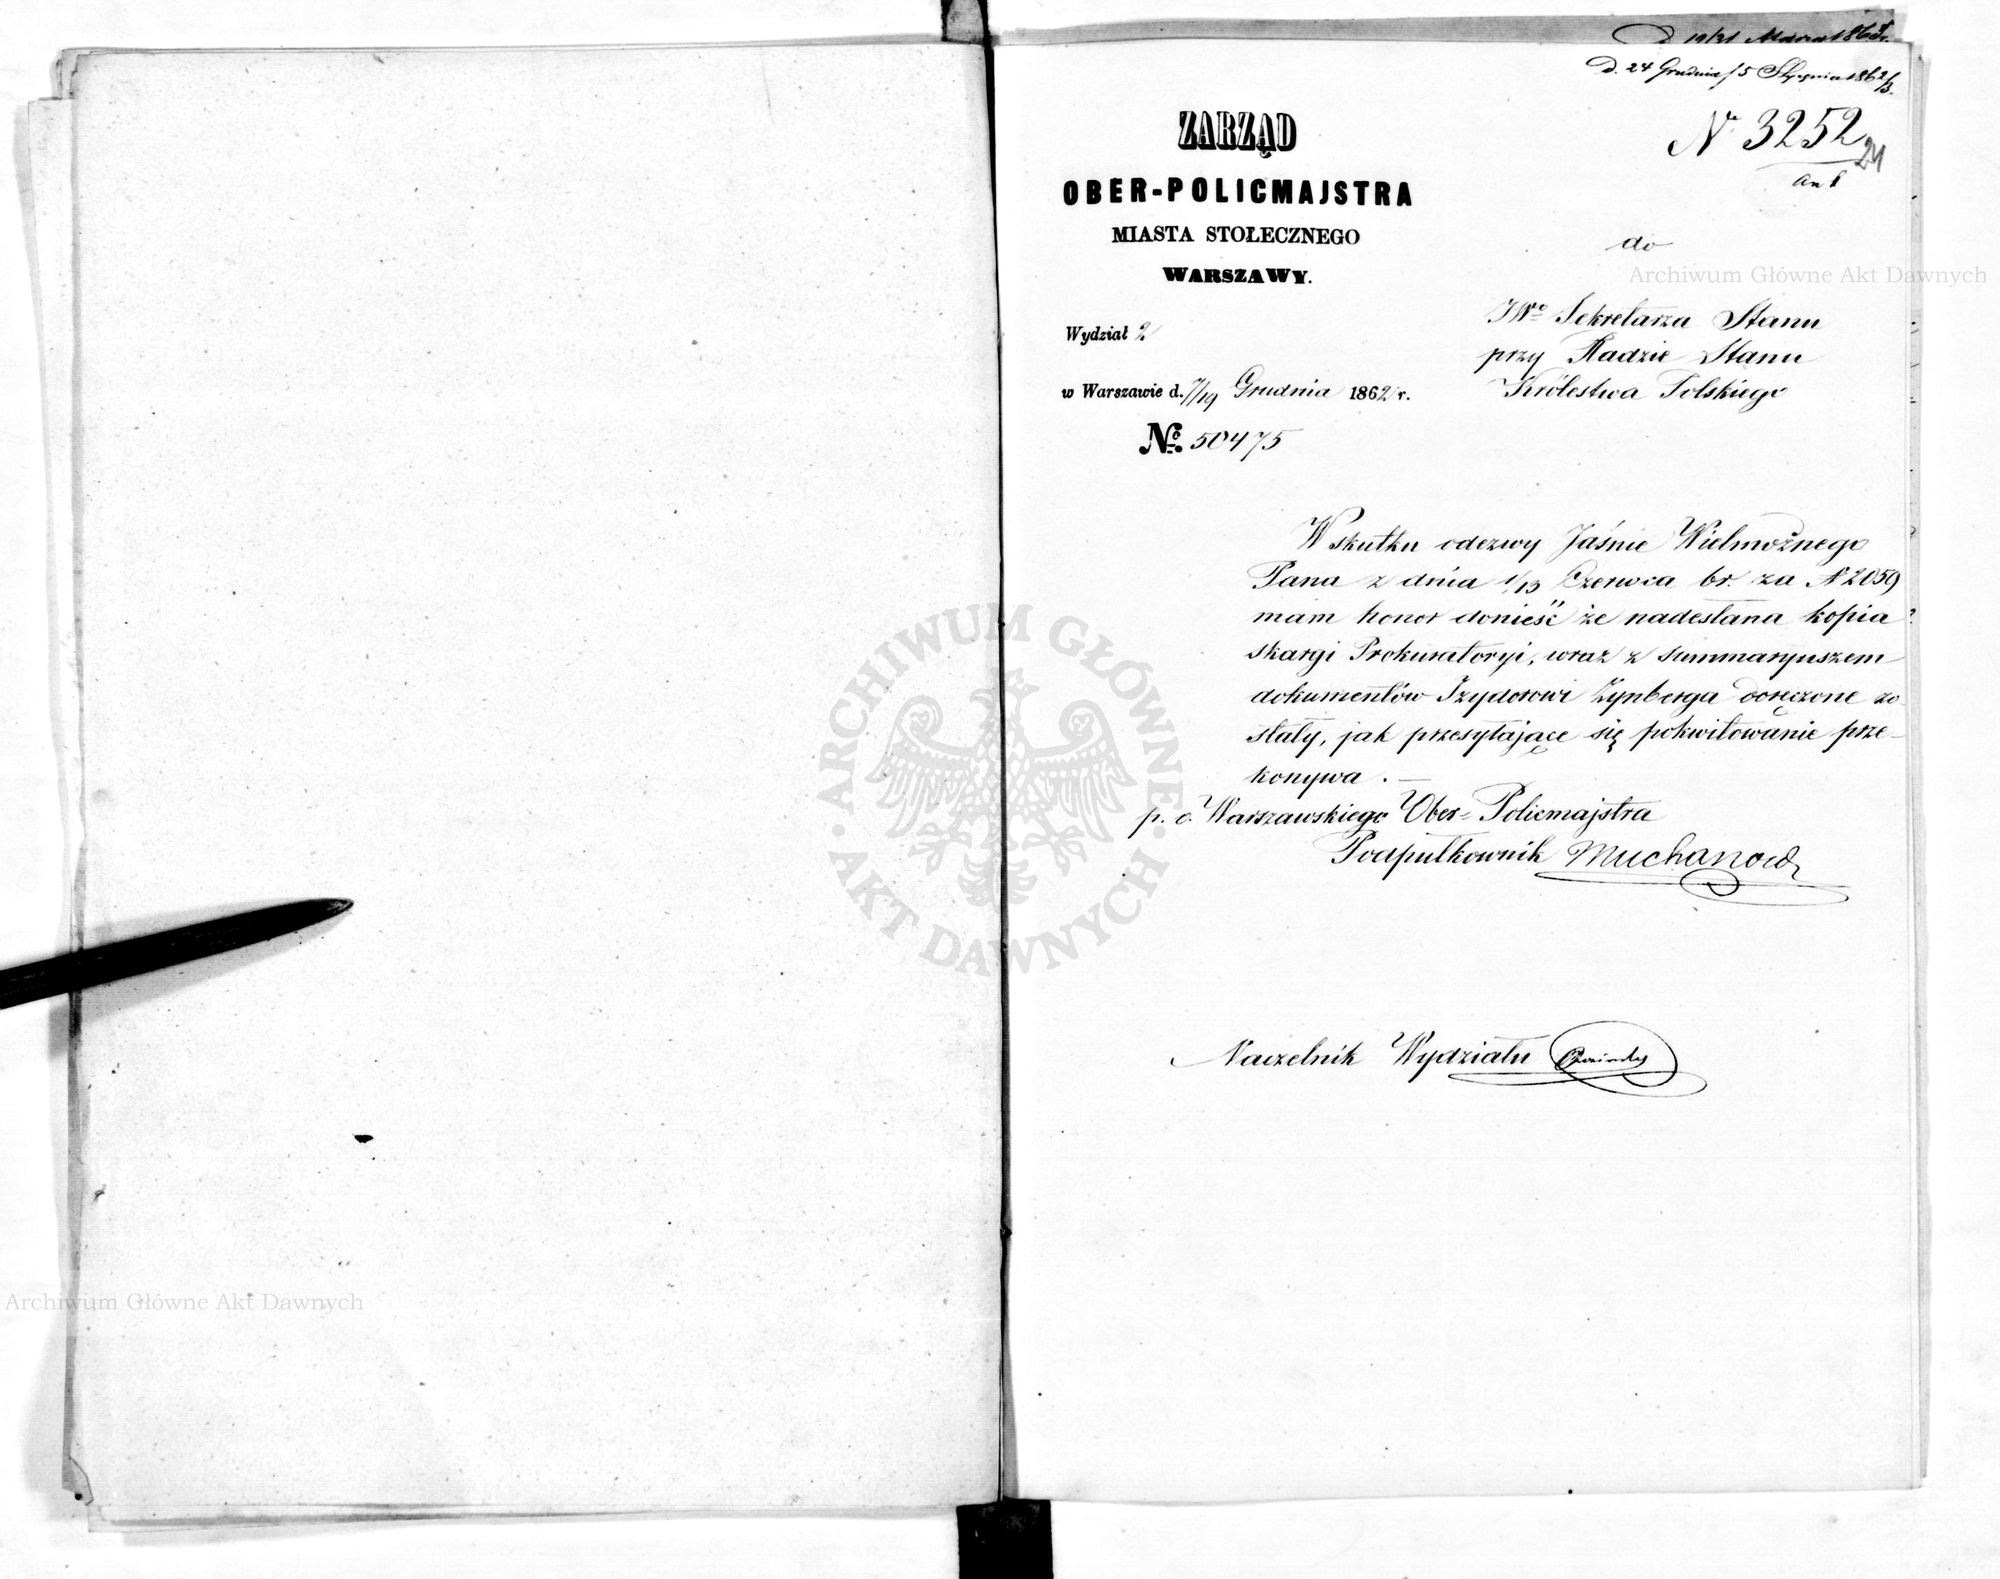 D 19/31 Marca 1863 r.
D. 24 Grudnia/5 Stycznia 1862/3.
N 3252
24
an 1
ZARZĄD
OBER-POLICMAJSTRA
MIASTA STOŁECZNEGO
WARSZAWY.
Wydział 2
w Warszawie d. 7/19 Grudnia 1862 r.
No. 50475
do
JWo Sekretarza Stanu
przy Radzie Stanu
Królestwa Polskiego
W skutku odezwy Jaśnie Wielmożnego
Pana z dnia 1/13 Czerwca br. za N 2059
mam honor donieść że nadesłana kopia
skargi Prokuratoryi, wraz z summaryuszem
dokumentów Izydorowi Zynberga doręczone zo
stały, jak przesyłające się pokwitowanie prze-
konywa. —
p. o. Warszawskiego Ober-Policmajstra
Podpułkownik Muchanow
Naczelnik Wydziału
Archiwum Główne Akt Dawnych
Archiwum Główne Akt Dawnych
ARCHIWUM GŁÓWNE AKT DAWNYCH